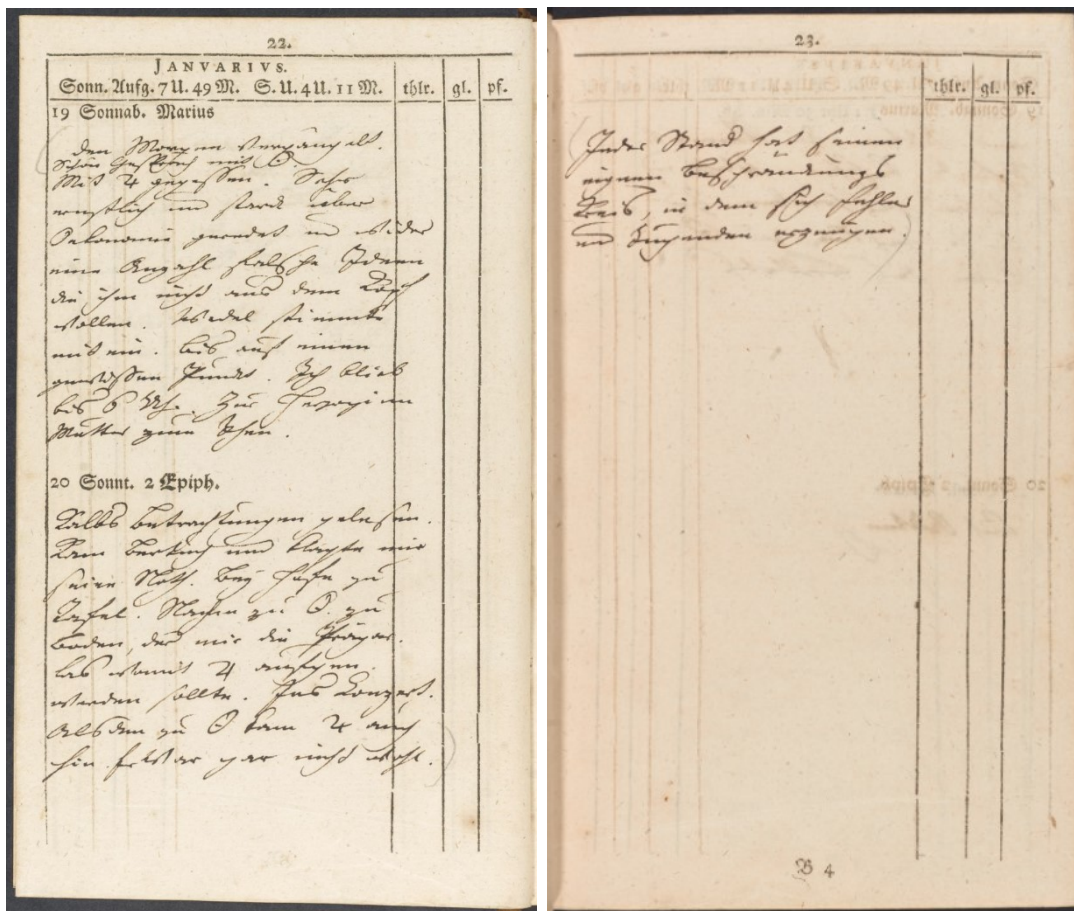 22.
JANVARIVS.
Sonn. Aufg. 7 U. 49 M. S. U. 4 U. 11 M. thlr. gl. pf.
19 Sonnab. Marius
den Morgen
Schön Gespräch mit ☉.
Mit ♃ gegessen. Sehr
ernstlich und starck über
Oekonomie geredet und wider
eine Anzahl falsche Ideen
die ihm nicht aus dem Kopf
wollen. Wedel stimmte
mit ein. bis auf einen
gewissen Punckt. Ich blieb
bis 6 Uhr. Zur Herzoginn
Mutter zum Essen.
20 Sonnt. 2 Epiph.
Kalbs Betrachtungen gelesen.
Kam Bertuch und klagte mir
seine Noth. Bey Hofe zu
Tafel. Nachm zu ☉. zu
Loden, der mir die Präpar.
las womit ♃ aufgen.
werden sollte. Ins Konzert.
Alsdenn zu ☉ kam ♃ auch
hin war gar nicht wohl.
23.
thlr. gl. pf.
Jeder Stand hat seinen
eignen Beschränckungs
Kreis, in dem sich Fehler
und Tugenden erzeugen.
B 4